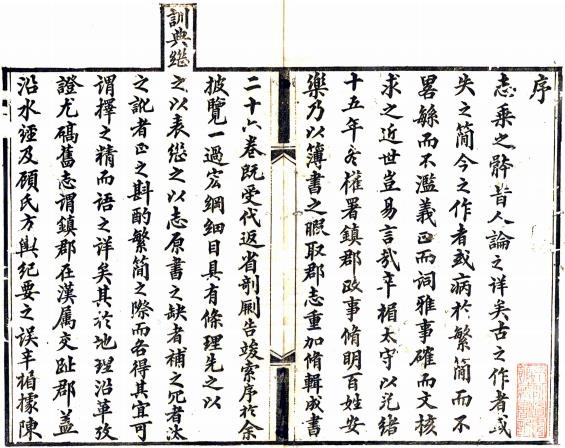 序
志乘之體昔人論之詳矣古之作者或
失之簡今之作者或病於繁簡而不
畧繇而不濫義正而詞雅事確而文核
求之近世豈易言哉辛楣太守以光緒
十五年冬權署鎮郡政事脩明百姓安
樂乃以簿書之暇取郡志重加脩輯成書
訓典繼
二十六卷既受代返省剞劂告竣索序於余
披覽一過宏綱細目具有條理先之以
之以表繼之以志原書之缺者補之冗者汰
之訛者正之斟酌繁簡之際而各得其宜可
謂擇之精而語之詳矣其於地理沿革攷
證尤碻舊志謂鎮郡在漢属交趾郡蓋
沿水經及顧氏方輿紀要之误辛楣據陳